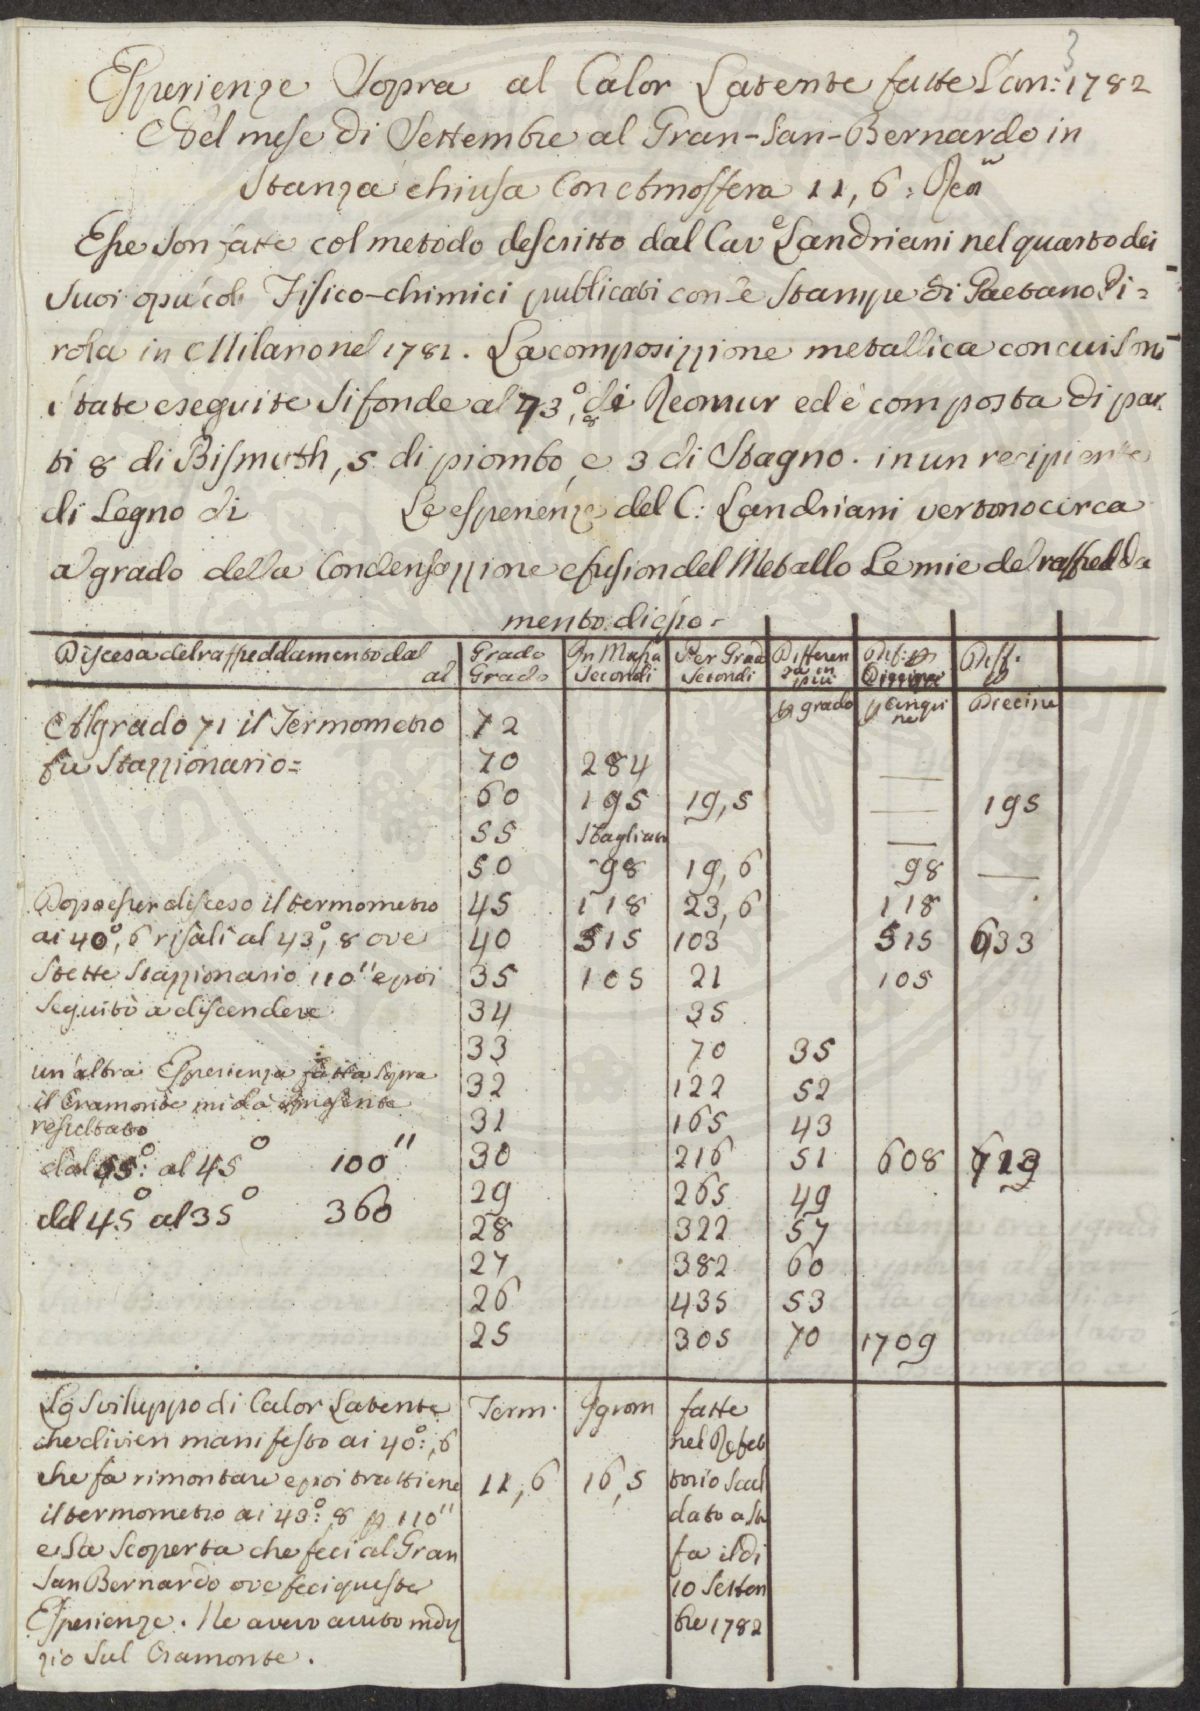 3
Esperienze Sopra al Calor Latente fatte L'an: 1782
Nel mese di Settembre al Gran-San-Bernardo in
Stanza chiusa Con Atmosfera 11,6: Rea
Esse son fatte col metodo descritto dal Cav.º Landriani nel quarto dei
suoi opuscoli Fisico-chimici publicati con le Stampe di Gaetano Pi=
rola in Milano nel 1781. La composizzione metallica con cui son
state eseguite si fonde al 73º,8 di Reomur ed è composta di par
ti 8 di Bismuth, 5 di piombo, e 3 di Stagno. in un recipiente
di Legno di Le esperienze del C: Landriani vertono circa
al grado della Condensazzione e fusion del Metallo Le mie del raffredda
mento di esso.
Discesa del raffreddamento dal al | Grado Grado | In Massa Secondi | Per Grado Secondi | Differen za in più | Diff: | Diff.
p grado | p cinqui ne | Diecine
Al grado 71 il Termometro | 72
fu Stazzionario= | 70 | 284 | —
60 | 195 | 19,5 | — | 195
55 | Sbagliato | —
50 | 98 | 19,6 | 98 | —
Dopo esser disceso il termometro | 45 | 118 | 23,6 | 118
ai 40º,6 risalì al 43º,8 ove | 40 | 515 | 103 | 515 | 633
stette Stazzionario 110" e poi | 35 | 105 | 21 | 105
seguitò a discendere | 34 | 35
33 | 70 | 35
un'altra Esperienza fatta sopra
il Cramonte mi dà il seguente | 32 | 122 | 52
resultato | 31 | 165 | 43
dal 55º: al 45º 100" | 30 | 216 | 51 | 608 | 713
29 | 265 | 49
dal 45º al 35º 360 | 28 | 322 | 57
27 | 382 | 60
26 | 435 | 53
25 | 305 | 70 | 1709
Lo Sviluppo di Calor Latente | Term. | Igrom | fatte
che divien manifesto ai 40º:,6 | nel Refet
che fa rimontare e poi trattiene | 11,6 | 16,5 | torio Scal
il termometro ai 43º:,8 p 110" | dato a Stu
e La Scoperta che feci al Gran | fa il dì
San Bernardo ove feci queste | 10 Settem
Esperienze. Ne avevo avuto indi | bre 1782
zio sul Cramonte.